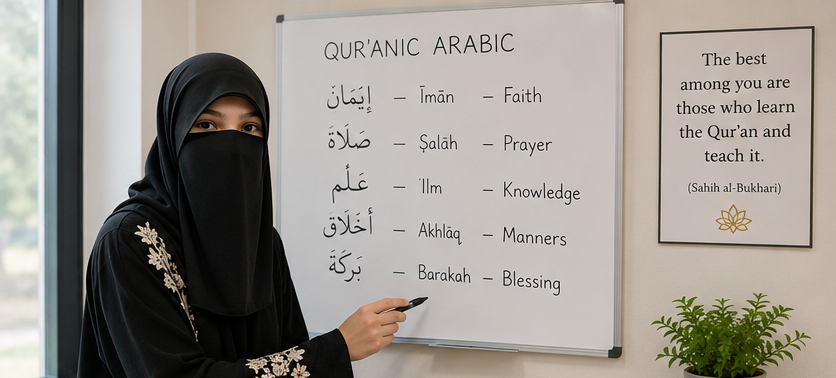 QUR'ANIC ARABIC
إِيْمَانَ – Īmān – Faith
صَلَاةَ – Ṣalāh – Prayer
عَلْم – 'Ilm – Knowledge
أخَلَاق – Akhlāq – Manners
بَرَكَةَ – Barakah – Blessing
The best
among you are
those who learn
the Qur'an and
teach it.
(Sahih al-Bukhari)